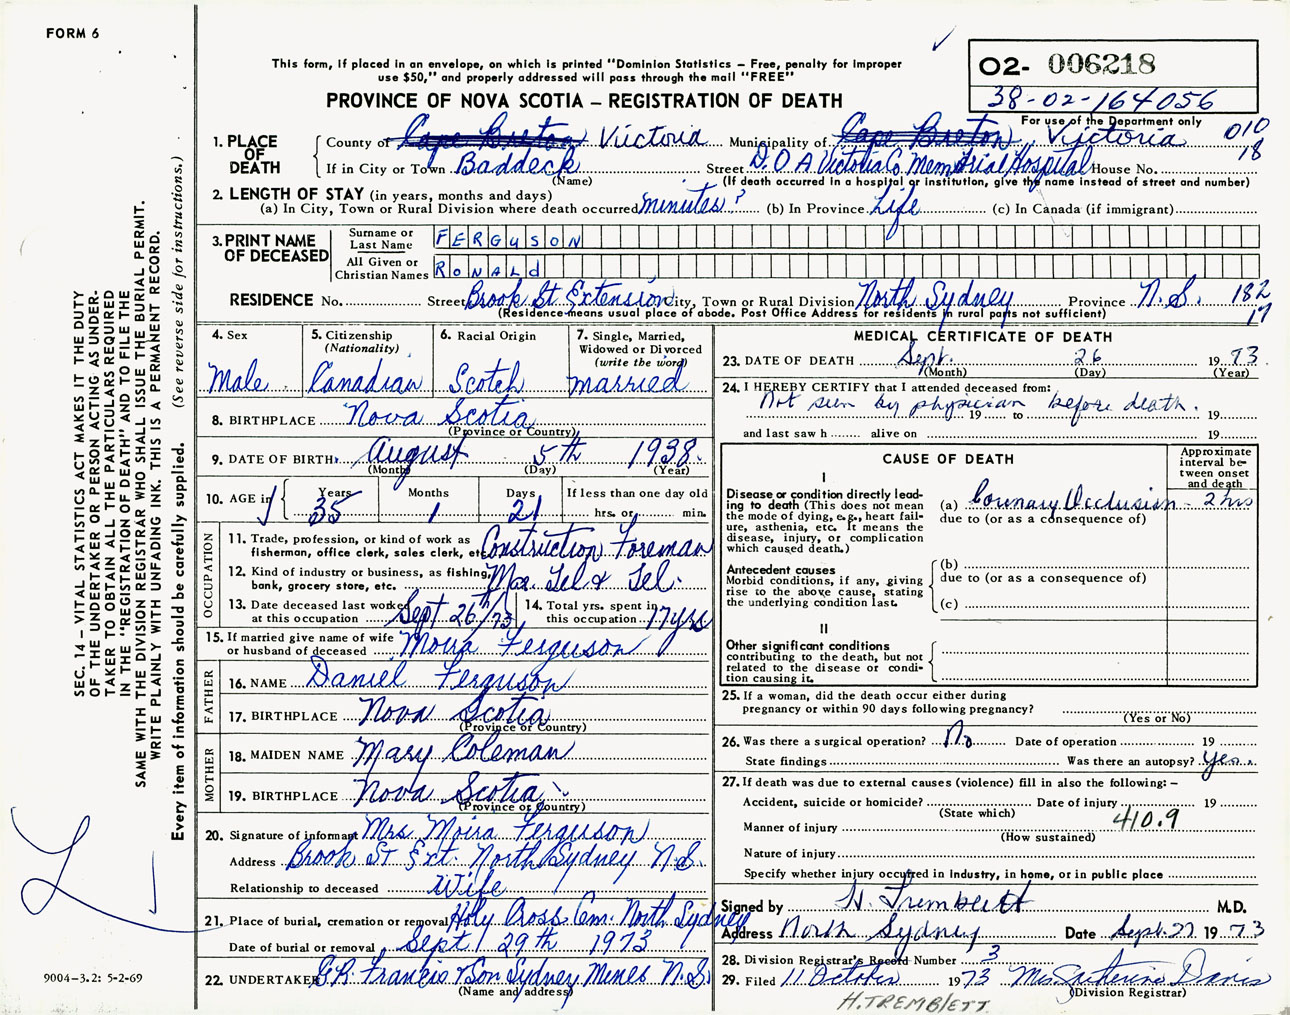 FORM 6
This form, if placed in an envelope, on which is printed "Dominion Statistics – Free, penalty for improper
use $50," and properly addressed will pass through the mail "FREE"
PROVINCE OF NOVA SCOTIA – REGISTRATION OF DEATH
02- 006218
38-02-164056
For use of the Department only
010
18
1. PLACE OF DEATH
County of Cape Breton Victoria Municipality of Cape Breton Victoria
If in City or Town Baddeck Street D.O.A Victoria Co. Memorial Hospital House No.
(Name) (If death occurred in a hospital or institution, give the name instead of street and number)
2. LENGTH OF STAY (in years, months and days)
(a) In City, Town or Rural Division where death occurred minutes? (b) In Province Life (c) In Canada (if immigrant)
3. PRINT NAME OF DECEASED
Surname or Last Name FERGUSON
All Given or Christian Names RONALd
RESIDENCE No. Street Brook St Extension City, Town or Rural Division North Sydney Province N.S. 182
17
(Residence means usual place of abode. Post Office Address for residents in rural parts not sufficient)
4. Sex
Male
5. Citizenship
(Nationality)
Canadian
6. Racial Origin
Scotch
7. Single, Married,
Widowed or Divorced
(write the word)
married
8. BIRTHPLACE Nova Scotia
(Province or Country)
9. DATE OF BIRTH August 5th 1938
(Month) (Day) (Year)
10. AGE in
Years Months Days If less than one day old
35 1 21 hrs. or min.
OCCUPATION
11. Trade, profession, or kind of work as
fisherman, office clerk, sales clerk, etc. Construction Foreman
12. Kind of industry or business, as fishing,
bank, grocery store, etc. Mar. Tel & Tel.
13. Date deceased last worked
at this occupation Sept 26th/73
14. Total yrs. spent in
this occupation 17 yrs
15. If married give name of wife
or husband of deceased Moira Ferguson
FATHER
16. NAME Daniel Ferguson
17. BIRTHPLACE Nova Scotia
(Province or Country)
MOTHER
18. MAIDEN NAME Mary Coleman
19. BIRTHPLACE Nova Scotia
(Province or Country)
20. Signature of informant Mrs Moira Ferguson
Address Brook St Ext. North Sydney N.S.
Relationship to deceased Wife
21. Place of burial, cremation or removal Holy Cross Cem. North Sydney
Date of burial or removal Sept 29th 1973
22. UNDERTAKER G.R. Francis & Son Sydney Mines N.S.
(Name and address)
MEDICAL CERTIFICATE OF DEATH
23. DATE OF DEATH Sept. 26 1973
(Month) (Day) (Year)
24. I HEREBY CERTIFY that I attended deceased from:
Not seen by physician before death.
19 to 19
and last saw h alive on 19
CAUSE OF DEATH
Approximate
interval be-
tween onset
and death
I
Disease or condition directly lead-
ing to death (This does not mean
the mode of dying, e.g., heart fail-
ure, asthenia, etc. It means the
disease, injury, or complication
which caused death.)
(a) Coronary Occlusion - 2 hrs
due to (or as a consequence of)
Antecedent causes
Morbid conditions, if any, giving
rise to the above cause, stating
the underlying condition last.
(b)
due to (or as a consequence of)
(c)
II
Other significant conditions
contributing to the death, but not
related to the disease or condi-
tion causing it.
25. If a woman, did the death occur either during
pregnancy or within 90 days following pregnancy?
(Yes or No)
26. Was there a surgical operation? No Date of operation 19
State findings Was there an autopsy? Yes
27. If death was due to external causes (violence) fill in also the following: –
Accident, suicide or homicide? Date of injury 19
(State which)
410.9
Manner of injury
(How sustained)
Nature of injury
Specify whether injury occurred in industry, in home, or in public place
Signed by H. Tremblett M.D.
Address North Sydney Date Sept. 27 1973
28. Division Registrar's Record Number 3
29. Filed 11 October 1973 Mrs. Catherine Davis
(Division Registrar)
H. TREMBLETT.
SEC. 14 – VITAL STATISTICS ACT MAKES IT THE DUTY
OF THE UNDERTAKER OR PERSON ACTING AS UNDER-
TAKER TO OBTAIN ALL THE PARTICULARS REQUIRED
IN THE "REGISTRATION OF DEATH" AND TO FILE THE
SAME WITH THE DIVISION REGISTRAR WHO SHALL ISSUE THE BURIAL PERMIT.
WRITE PLAINLY WITH UNFADING INK. THIS IS A PERMANENT RECORD.
Every item of information should be carefully supplied. (See reverse side for instructions.)
9004-3.2: 5-2-69